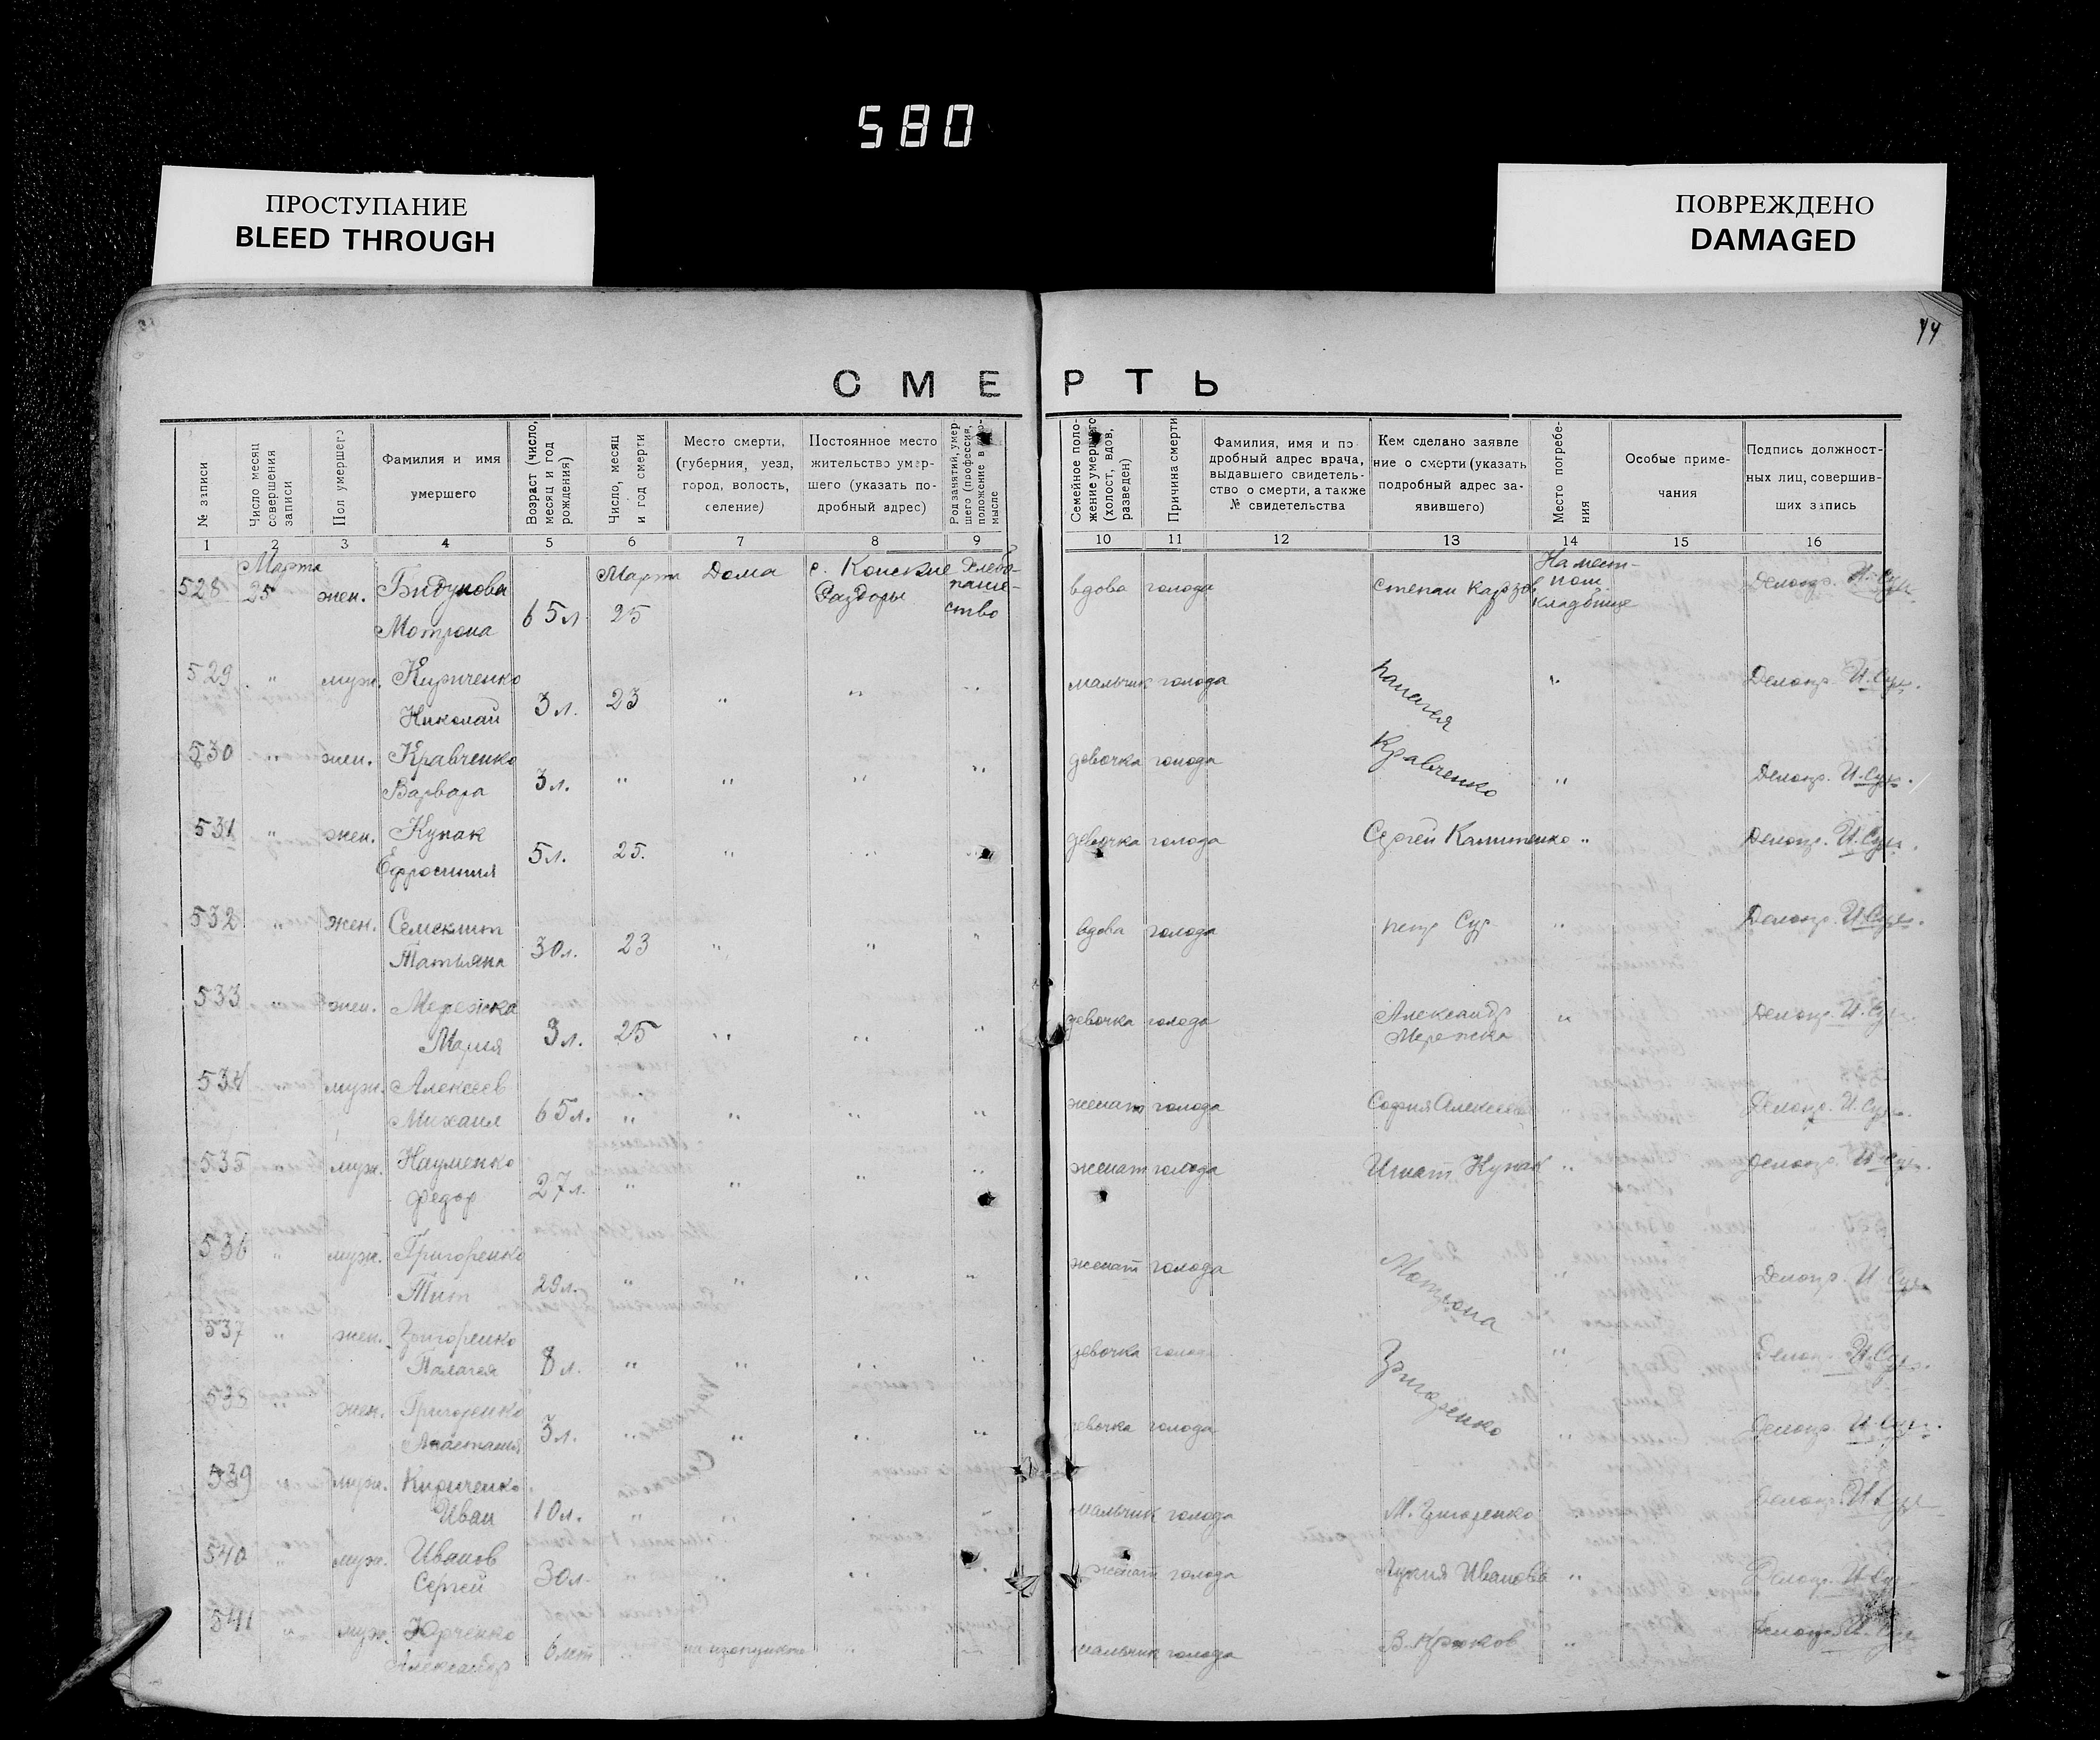 580
ПРОСТУПАНИЕ
BLEED THROUGH
ПОВРЕЖДЕНО
DAMAGED
СМЕРТЬ
№ записи
Число месяц совершения записи
Пол умершего
Фамилия и имя умершего
Возраст (число, месяц и год рождения)
Число, месяц и год смерти
Место смерти, (губерния, уезд, город, волость, селение)
Постоянное место жительство умершего (указать подробный адрес)
Род занятий, умершего (профессия, положение в промысле
Семейное положение умершего (холост, вдов, разведен)
Причина смерти
Фамилия, имя и подробный адрес врача, выдавшего свидетельство о смерти, а также № свидетельства
Кем сделано заявление о смерти (указать подробный адрес заявившего)
Место погребения
Особые примечания
Подпись должностных лиц, совершивших запись
1 2 3 4 5 6 7 8 9 10 11 12 13 14 15 16
528 Марта 25 жен. Мотрона 65 л Марта 25 Дома с. Конские Раздоры Хлебопашество вдова голода Степан На мест- кладбище Делопр. И. Сук
529 " муж. Кириченко Николай 3 л. 23 " " " мальчик голода Палагея " Делопр. И. Сук.
530 " жен. Кравченко Варвара 3 л. " " " " девочка голода Кравченко " Делопр. И. Сук.
531 " жен. Купак Ефросиния 5 л. 25. " " девочка голода Сергей " Делопр. И. Сук.
532 " жен. Татьяна 30 л. 23 " " " вдова голода петр Сук " Делопр. И. Сук.
533 " жен. Мережка Мария 3 л. 25 " " " девочка голода Александр Мережка " Делопр. И. Сук.
534 муж. Алексеев Михаил 65 л. " " " " женат голода София Алексеева " Делопр. И. Сук.
535 муж. Науменко Федор 27 л. " " " " женат голода Игнат Купак " Делопр. И. Сук.
536 " муж. Григоренко Тит 29 л. " " " " женат голода Мотрона Делопр. И. Сук
537 " жен. Григоренко Палагея 8 л. " " " " девочка голода Григоренко " Делопр. И. Сук.
538 " жен. Григоренко Анастасия 3 л. " " " " девочка голода " Делопр. И. Сук.
539 муж. Кириченко Иван 10 л. " " " мальчик голода М. Григоренко Делопр. И. Сук
540 " муж. Иванов Сергей 30 л. " " " " женат голода Иванова " Делопр. И. Сук
541 " муж. Юрченко Александр 6 лет " " " мальчик голода В. Крюков " Делопр. И. Сук